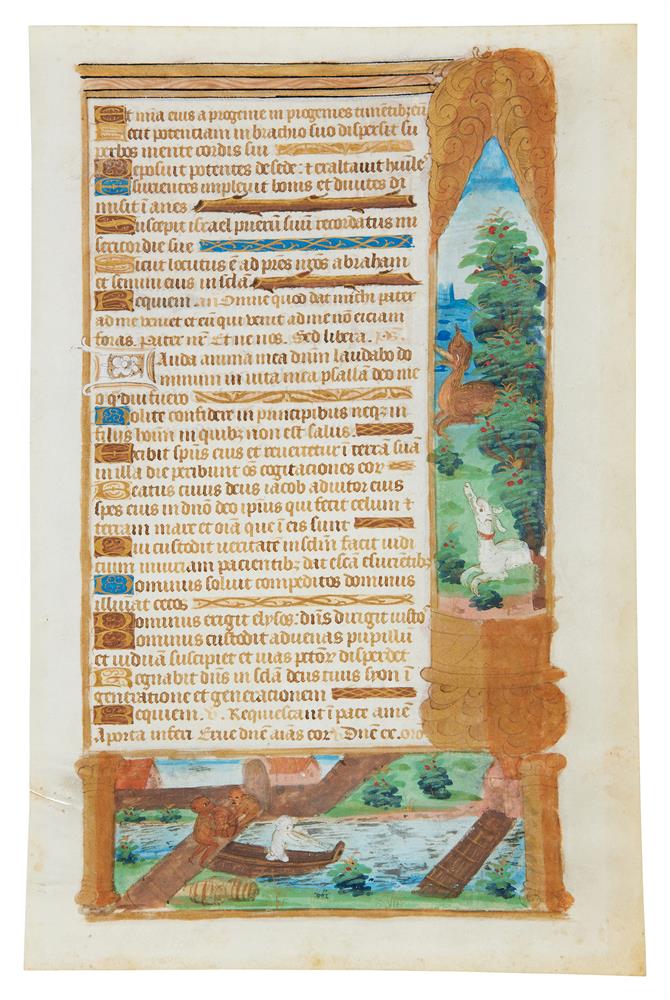 Et mia eius a progenie in progenies timetibz eu
fecit potenciam in brachio suo dispersit su
perbos mente cordis sui
Deposuit potentes de sede: & exaltavit huile
Esurientes implevit bonis et divites di
misit i anes
Suscepit israel puerum suum recordatus mi
sericordie sue
Sicut locutus e ad pres nros abraham
et semini eius in scla
Requiem. an Omne quod dat michi pater
ad me veniet et eu qui venit ad me no eiciam
foras. Pater nr Et ne nos. Sed libera. ps.
Lauda anima mea dnm laudabo do
minum in vita mea psalla deo me
o q diu fuero
Nolite confidere in principibus neqz in
filiis homi in quibz non est salus
Exibit spus eius et revertetur i terra sua
in illa die peribunt os cogitaciones eor
Beatus cuius deus iacob adiutor eius
spes eius in dno deo ipius qui fecit celum &
terram mare et oia que i eis sunt
Qui custodit veritate in sclm facit iudi
cium iniuriam pacientibz dat esca esurientibz
Dominus solvit compeditos dominus
illuiat cecos
Dominus erigit elysos: dns dirigit iusto
Dominus custodit advenas pupillu
et viduam suscipiet et vias petor disperdet
Regnabit dnus in scla deus tuus syon i
generatione et generacionem
Requiem. v. Requiescant i pace ame
A porta inferi Erue dne aias eor Dne ex. oro